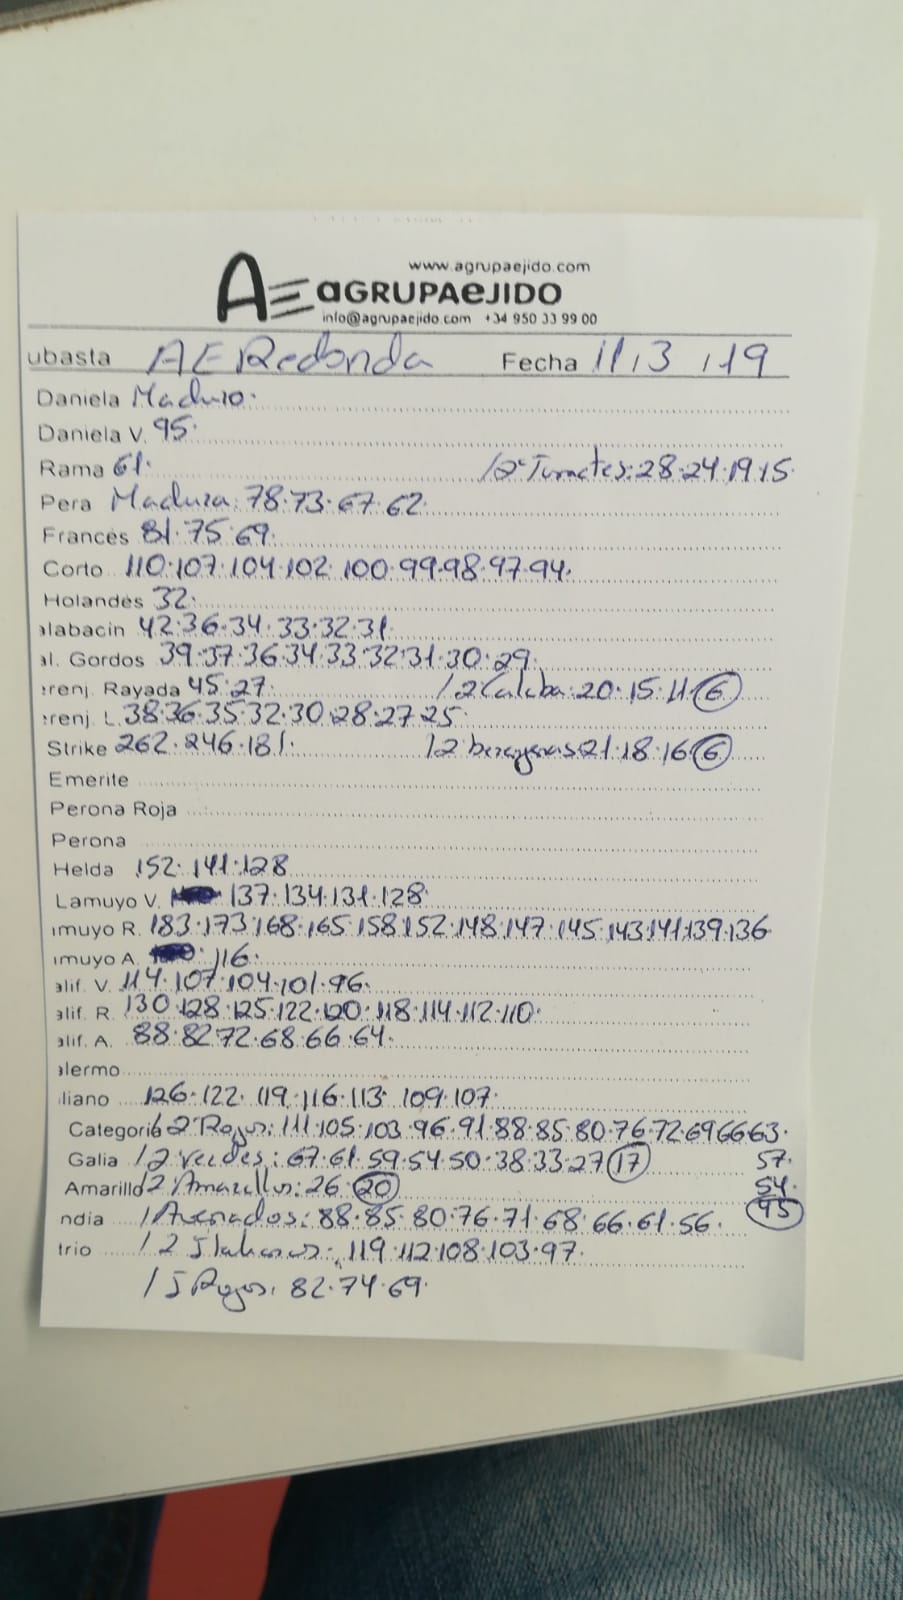 www.agrupaejido.com
AE AGRUPAEJIDO
info@agrupaejido.com +34 950 33 99 00
ubasta AE Redonda Fecha 11,3,19
Daniela Maduro.
Daniela V. 95.
Rama 61. /2ª Tomates: 28.24.19.15.
Pera Madura: 78.73.67.62.
Francés 81.75.69.
Corto 110.107.104.102.100.99.98.97.94.
Holandés 32.
alabacin 42.36.34.33.32.31.
al. Gordos 39.37.36.34.33.32.31.30.29.
erenj. Rayada 45.27. /2 Calaba: 20.15.11.6
erenj. L. 38.36.35.32.30.28.27.25.
Strike 262.246.181. /2 berenjenas 21.18.16.6
Emerite
Perona Roja
Perona
Helda 152.141.128
Lamuyo V. 137.134.131.128.
amuyo R. 183.173.168.165.158.152.148.147.145.143.141.139.136
amuyo A. 116.
alif. V. 114.107.104.101.96.
alif. R. 130.128.125.122.120.118.114.112.110.
alif. A. 88.82.72.68.66.64.
alermo
liano 126.122.119.116.113.109.107.
Categoria /2ª Rojos: 111.105.103.96.91.88.85.80.76.72.69.66.63.
Galia /2 Verdes: 67.61.59.54.50.38.33.27.17 57.
Amarillo /2 Amarillos: 26.20 54.
ndia / Asurados: 88.85.80.76.71.68.66.61.56. 45
trio /2 Italianos: 119.112.108.103.97.
/ J Rojos: 82.74.69.